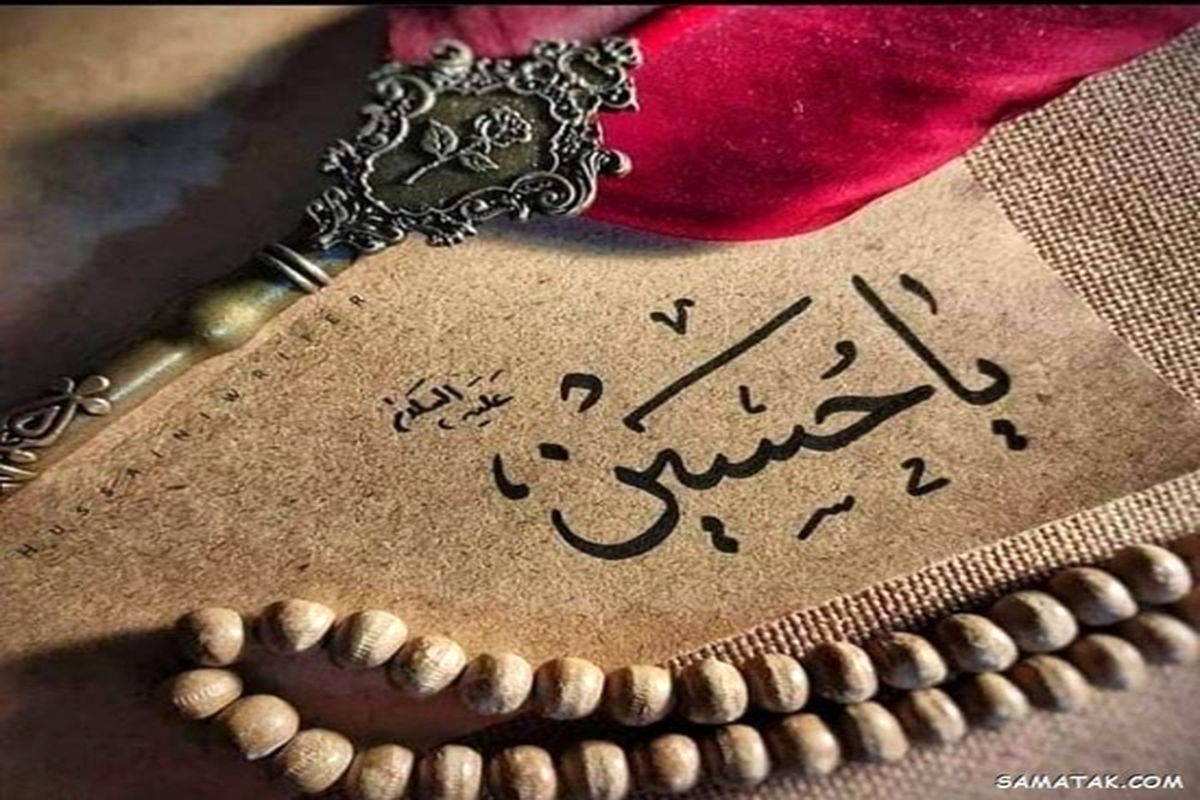 يا حُسَين
عليه السلام
HUSSAINIWRITER
SAMATAK.COM